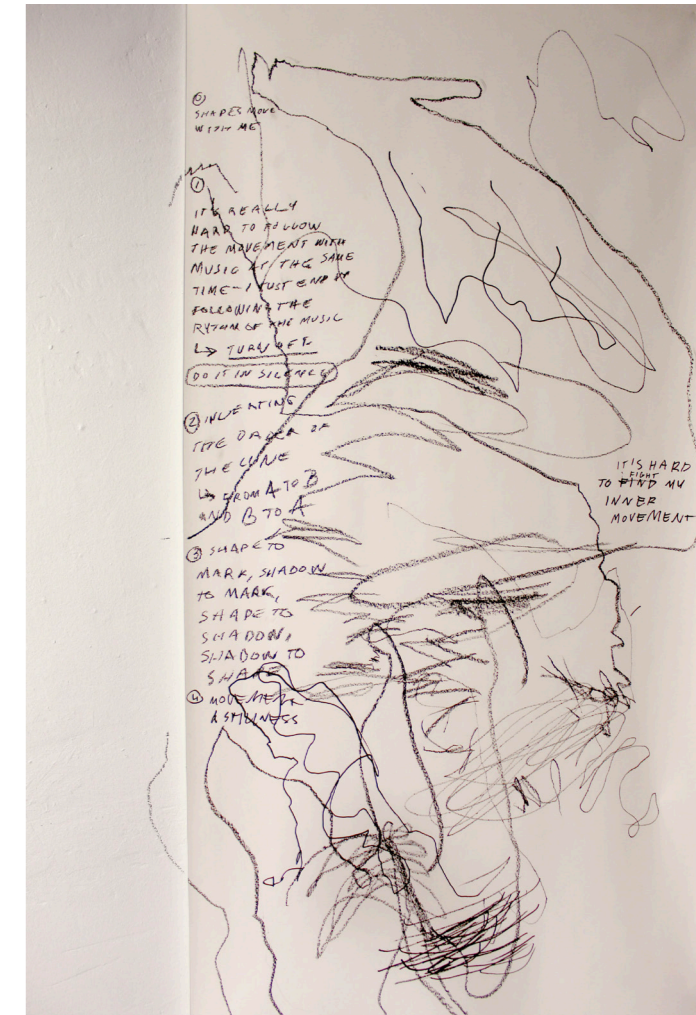 ⓪
SHAPES MOVE
WITH ME
①
IT'S REALLY
HARD TO FOLLOW
THE MOVEMENT WITH
MUSIC AT THE SAME
TIME - I JUST END UP
FOLLOWING THE
RYTHM OF THE MUSIC
↳ TURN OFF
DO IT IN SILENCE
② INVERTING
THE ORDER OF
THE LINE
↳ FROM A TO B
AND B TO A
③ SHAPE TO
MARK, SHADOW
TO MARK,
SHAPE TO
SHADOW,
SHADOW TO
SHAPE
④ MOVEMENT
& STILLNESS
IT'S HARD
FIGHT
TO FIND MY
INNER
MOVEMENT